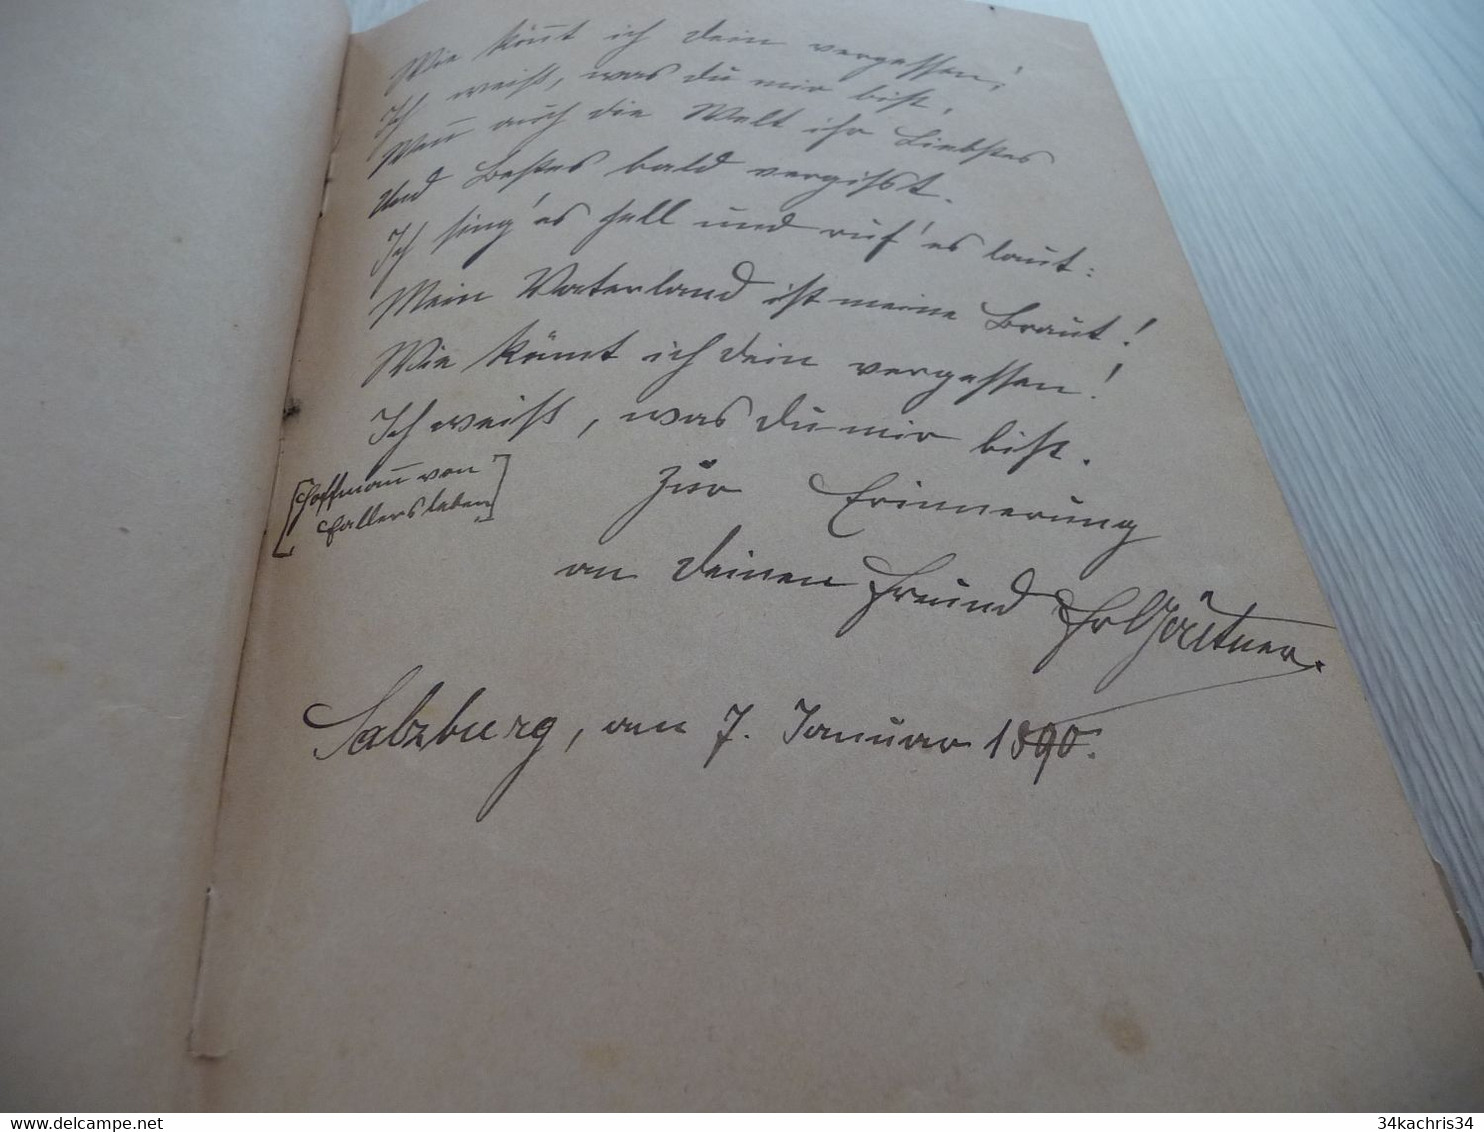 Wie kom̄t ich dein vergessen!
Ich weiß, was du mir bist,
Wen̄ auch die Welt ihr Liebstes
Und Bestes bald vergißt.
Ich sing' es hell und ruf' es laut:
Mein Vaterland ist meine Braut!
Wie könnt ich dein vergessen!
Ich weiß, was du mir bist.
[Hoffman̄ von
Fallersleben]
Zur Erinnerung
an deinen Freund Fr Gärtner.
Salzburg, am 7. Januar 1890.
delcampe.net
34kachris34